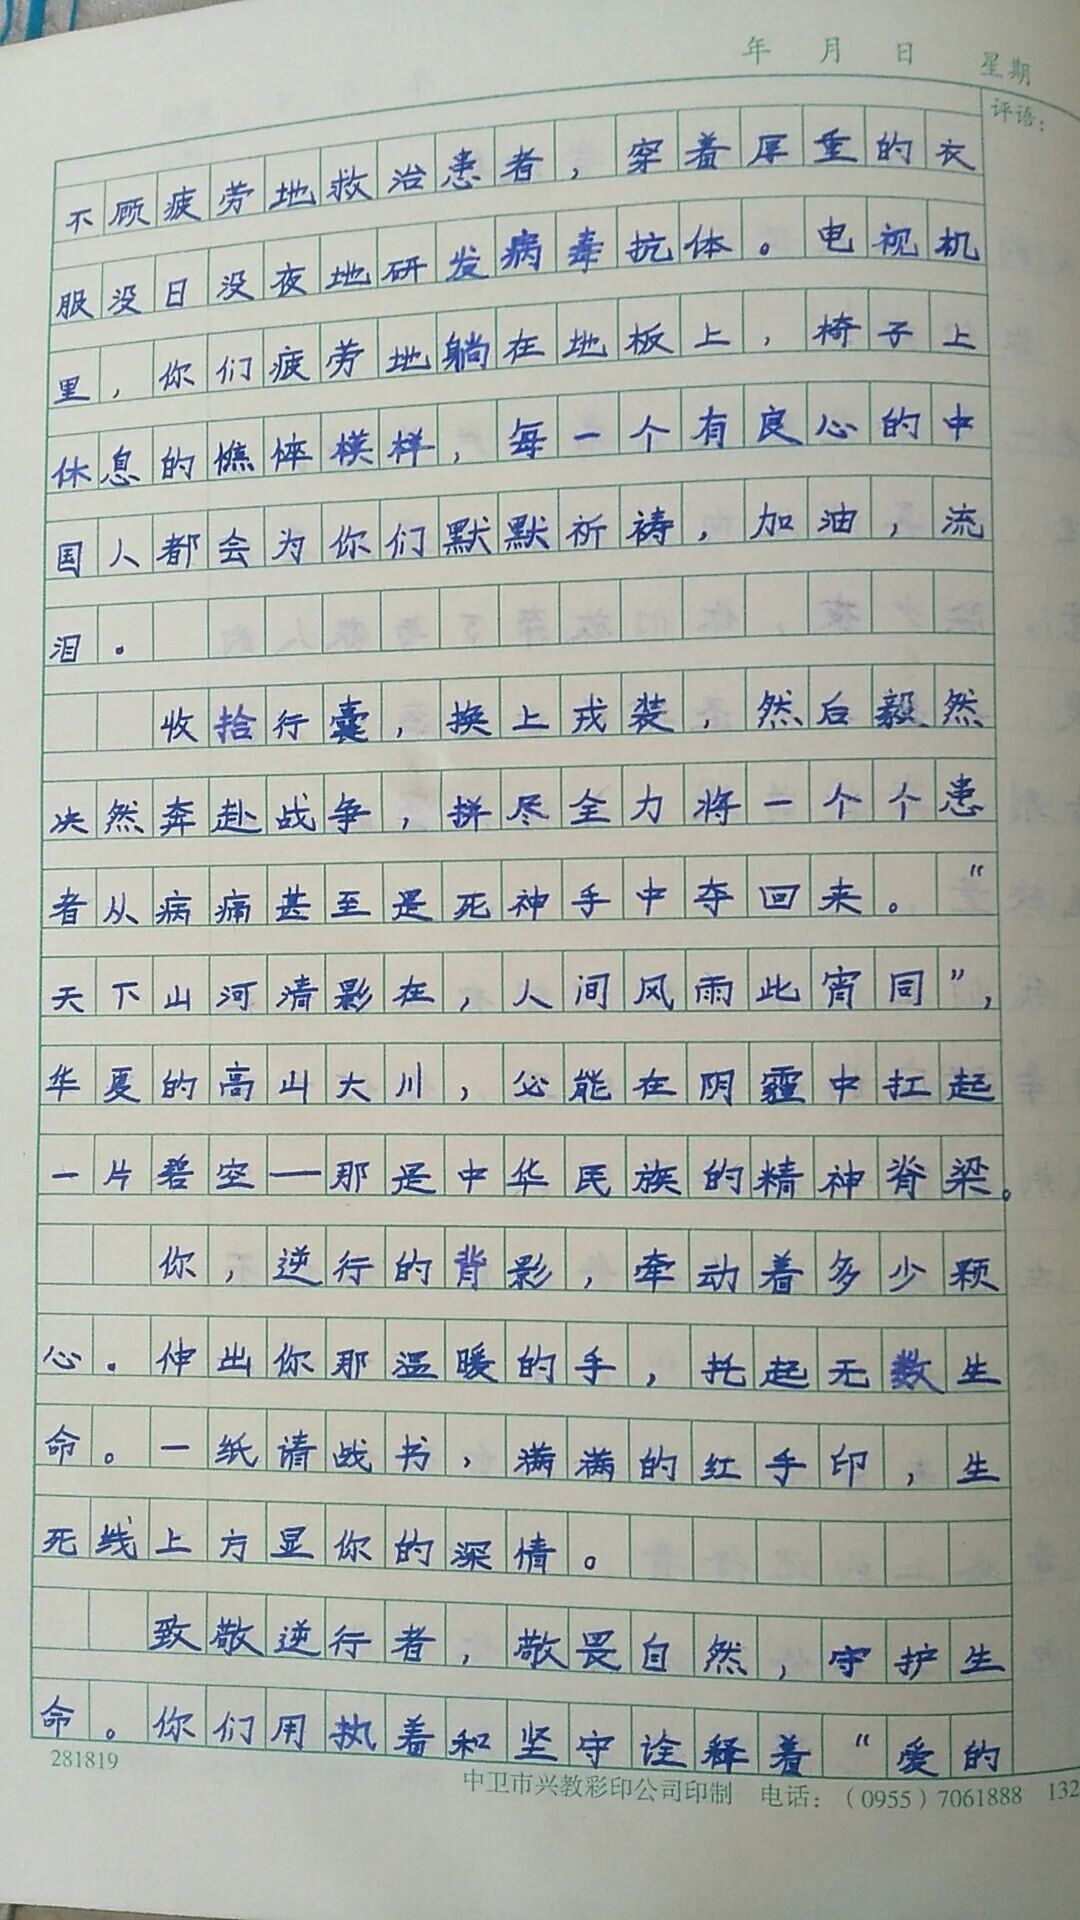 年 月 日 星期
评语:
不顾疲劳地救治患者，穿着厚重的衣
服没日没夜地研发病毒抗体。电视机
里，你们疲劳地躺在地板上，椅子上
休息的憔悴模样，每一个有良心的中
国人都会为你们默默祈祷，加油，流
泪。
收拾行囊，换上戎装，然后毅然
决然奔赴战争，拼尽全力将一个个患
者从病痛甚至是死神手中夺回来。“
天下山河清影在，人间风雨此宵同”，
华夏的高山大川，必能在阴霾中扛起
一片碧空——那是中华民族的精神脊梁。
你，逆行的背影，牵动着多少颗
心。伸出你那温暖的手，托起无数生
命。一纸请战书，满满的红手印，生
死线上方显你的深情。
致敬逆行者，敬畏自然，守护生
命。你们用执着和坚守诠释着“爱的
281819
中卫市兴教彩印公司印制 电话:（0955）7061888 132